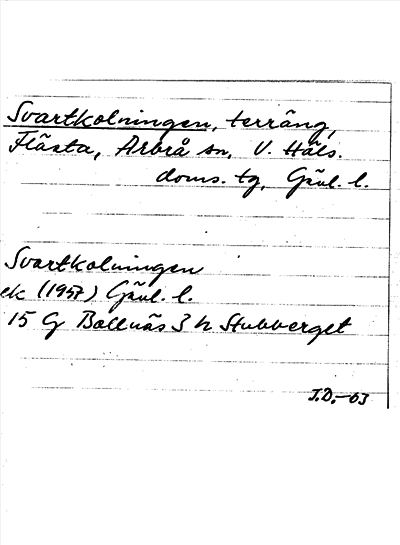 Svartkolningen, terräng,
Flästa, Arbrå sn, V. Häls.
doms. tg, Gävl. l.
Svartkolningen
ek (1957) Gävl. l.
15 G Bollnäs 3 h Stubberget
J.D.-63